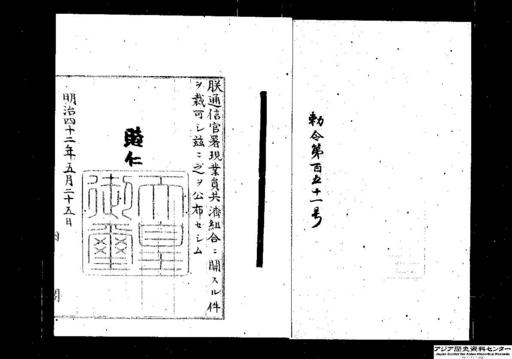 勅令第百五十一号
朕通信官署現業員共済組合ニ関スル件
ヲ裁可シ茲ニ之ヲ公布セシム
睦仁
天皇御璽
明治四十二年五月二十五日
内閣
アジア歴史資料センター
Japan Center for Asian Historical Records